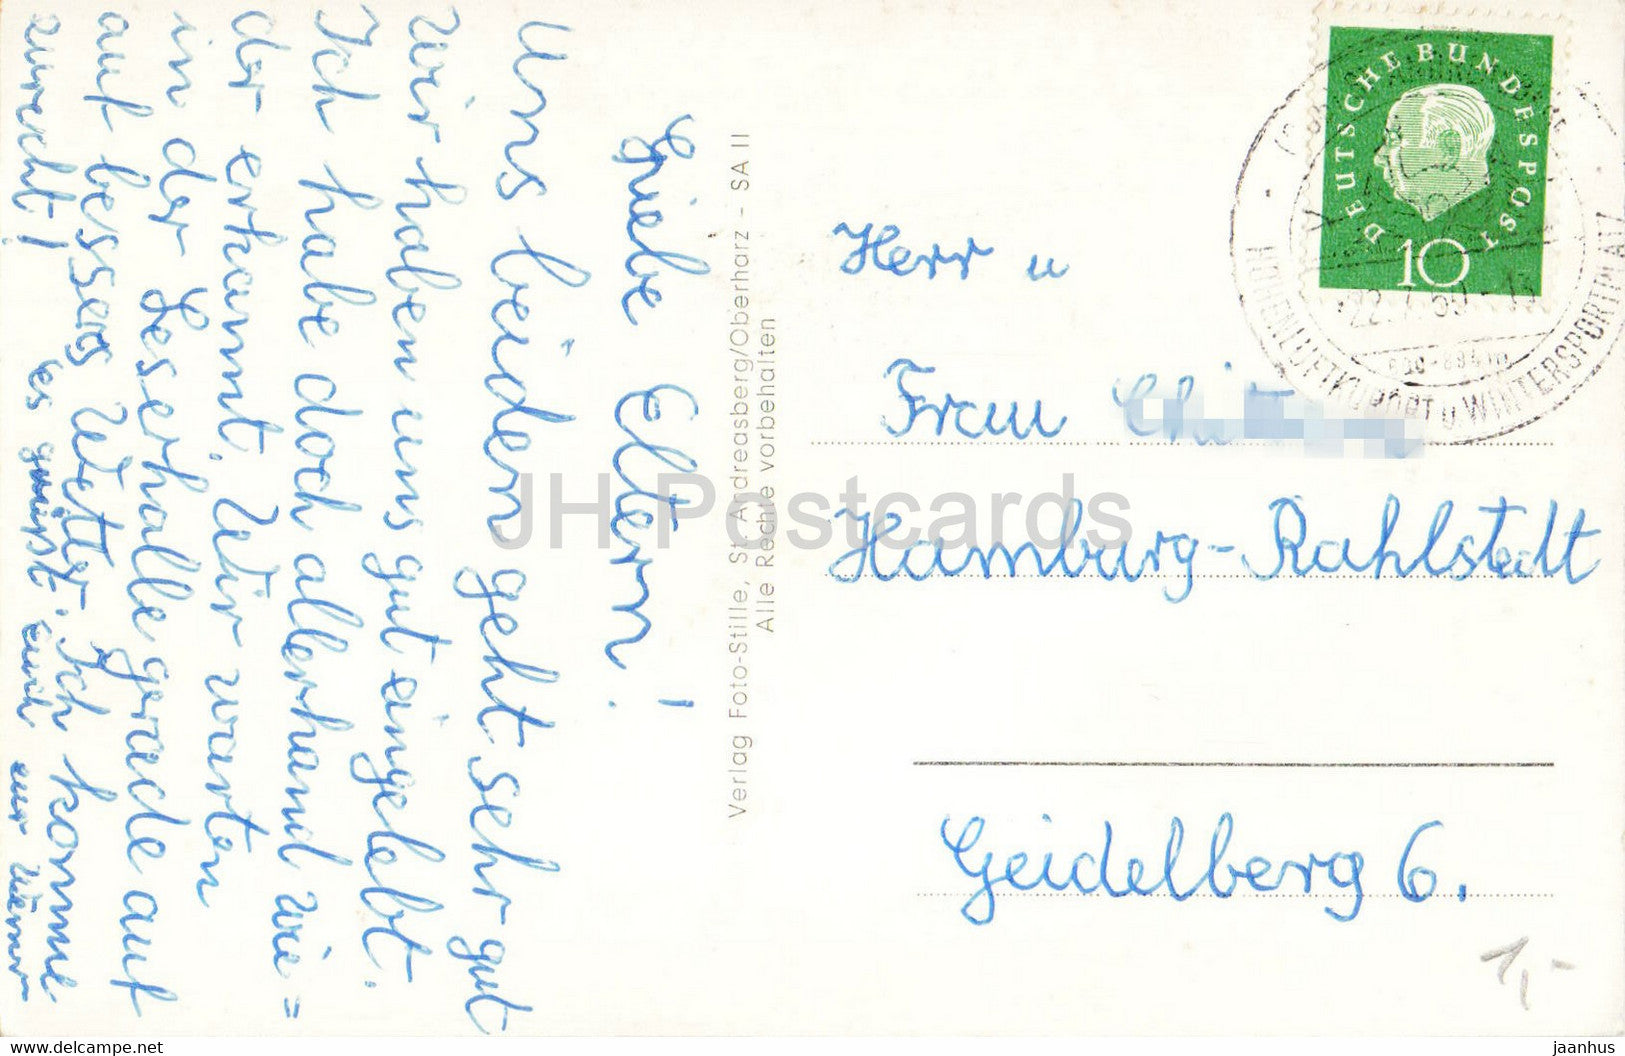 Liebe Eltern!
Uns beiden geht sehr gut
wir haben uns gut eingelebt.
Ich habe doch allerhand wie=
der erkannt. Wir warten
in der Leserhalle gerade auf
auf besseres Wetter. Ich komme
zurecht!
es grüßt euch eur Werner
Verlag Foto-Stille, St. Andreasberg/Oberharz - SA II
Alle Rechte vorbehalten
DEUTSCHE BUNDESPOST
10
22.7.60
HÖHENLUFTKURORT u. WINTERSPORTPLATZ
Herr u
Frau
Hamburg-Rahlstedt
Geidelberg 6.
1,-
JH Postcards
www.delcampe.net
jaanhus